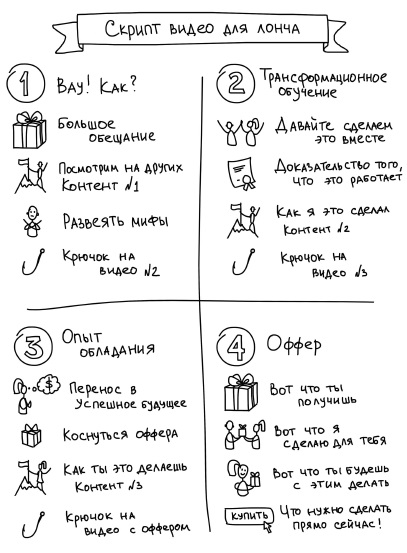 Скрипт видео для лонча
1 Вау! Как?
Большое
обещание
Посмотрим на других
Контент №1
Развеять мифы
Крючок на
видео №2
2 Трансформационное
обучение
Давайте сделаем
это вместе
Доказательство того,
что это работает
Как я это сделал
Контент №2
Крючок на
видео №3
3 Опыт
обладания
$
Перенос в
успешное будущее
Коснуться оффера
Как ты это делаешь
Контент №3
Крючок на
видео с оффером
4 Оффер
Вот что ты
получишь
Вот что я
сделаю для тебя
Вот что ты будешь
с этим делать
купить
Что нужно сделать
прямо сейчас!